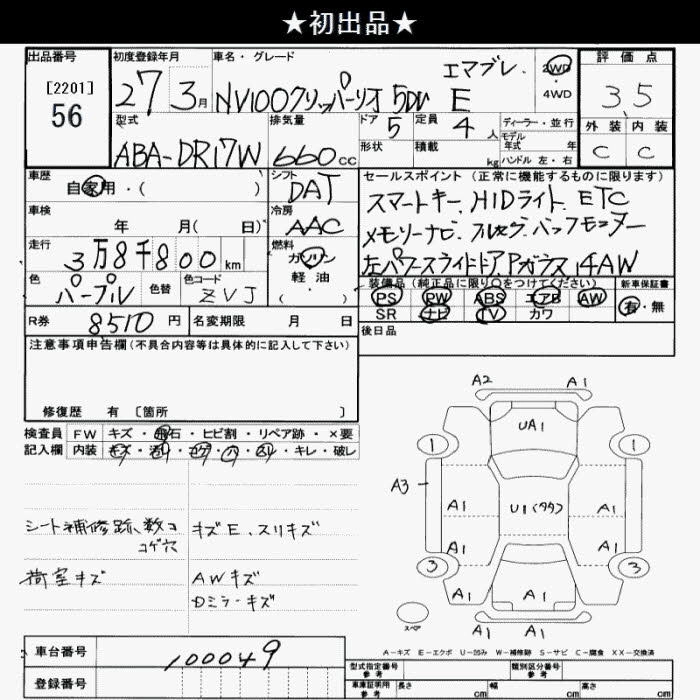 ★初出品★
出品番号 初度登録年月 車名・グレード 評価点
[2201]
56
27 3月 NV100クリッパーリオ 5DW E エマブレ. 2WD
4WD
3.5
型式 排気量 ドア 定員 ディーラー・並行 外装 内装
ABA-DR17W 660cc 5 4人 モデル年式 年
C C
形状 積載 kg ハンドル 左・右
車歴 シフト セールスポイント (正常に機能するものに限ります)
自家用・( ) DAT スマートキー、HIDライト、ETC
車検 冷房 メモリーナビ、フルセグ、バックモニター
年 月( 日) AAC 左パワースライドドア、Pガラス、14AW
走行 燃料
3万8千800km ガソリン
軽油
( ・ )
色 色替 色コード 装備品 (純正品に限り○をつけてください) 新車保証書
パープル ZVJ PS PW ABS エアB AW 有・無
SR ナビ TV カワ
R券 8510円 名変期限 月 日 後日品
注意事項申告欄 (不具合内容等は具体的に記入して下さい)
修復歴 有 〔箇所 〕
検査員 FW キズ・飛石・ヒビ割・リペア跡・×要
記入欄 内装 キズ・汚れ・コゲ・穴・スレ・キレ・破レ
シート補修跡、数コ
コゲ穴
荷室キズ
キズE、スリキズ
AWキズ
Dミラーキズ
A2 A1
UA1
1 1
A3
A1 U1(タタ) A1
A1 A1
3 3
A1 A1 A1
スペア
A1 A1
A-キズ E-エクボ U-凹み W-補修跡 S-サビ C-腐食 XX-交換済
車台番号 100049
登録番号
型式指定番号 参考 類別区分番号 参考
車庫証明用 参考 長さ cm 幅 cm 高さ cm